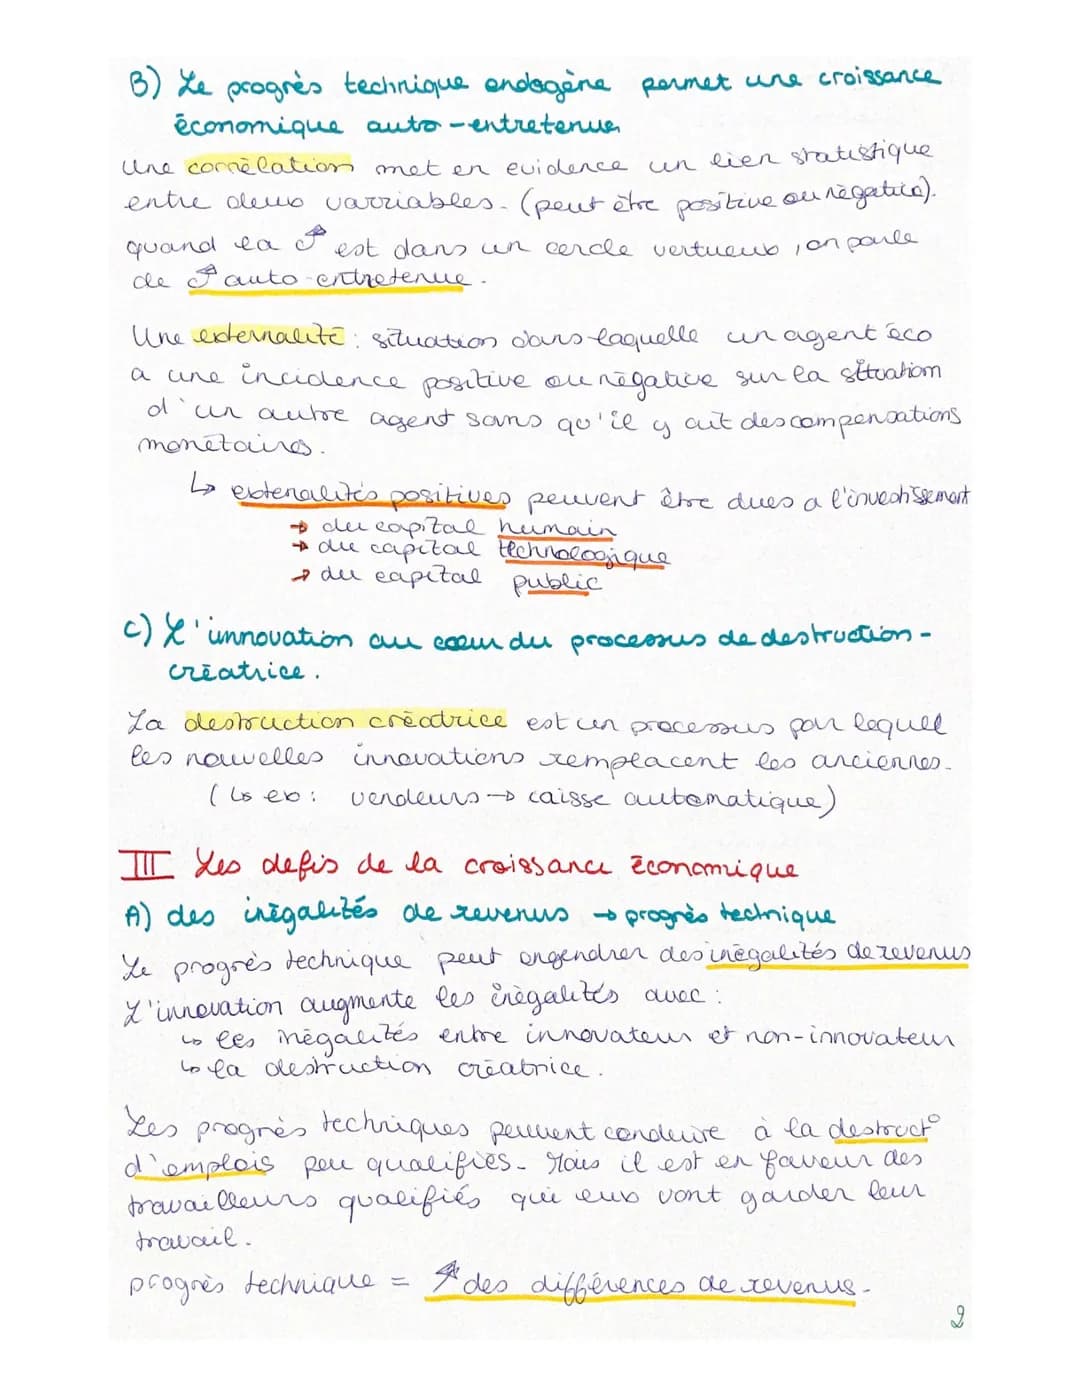 B) Le progrès technique endogène permet une croissance
économique auto-entretenue
Une corrélation met en evidence un lien statistique
entre deux varriables. (peut être positive ou négative).
quand la est dans un cercle vertueux, on parle
de auto-entretenue.
Une externalité : situation dans laquelle un agent éco
a une incidence positive ou négative sur la situation
d'un autre agent sans qu'il y ait des compensations
monétaires.
↳ externalités positives peuvent être dues a l'investissement
→ du capital humain
→ du capital technologique
→ du capital public
C) L'innovation au coeur du processus de destruction-
créatrice.
La destruction créatrice est un processus par lequel
les nouvelles innovations remplacent les anciennes.
(↳ ex: vendeurs → caisse automatique)
III Les defis de la croissance économique
A) des inégalités de revenus → progrès technique
Le progrès technique peut engendrer des inégalités de revenus
L'innovation augmente les inégalités avec :
↳ les inégalités entre innovateur et non-innovateur
↳ la destruction créatrice.
Les progrès techniques peuvent conduire à la destruct°
d'emplois peu qualifiés. Mais il est en faveur des
travailleurs qualifiés qui eux vont garder leur
travail.
progrès technique = ↗ des différences de revenus.
2